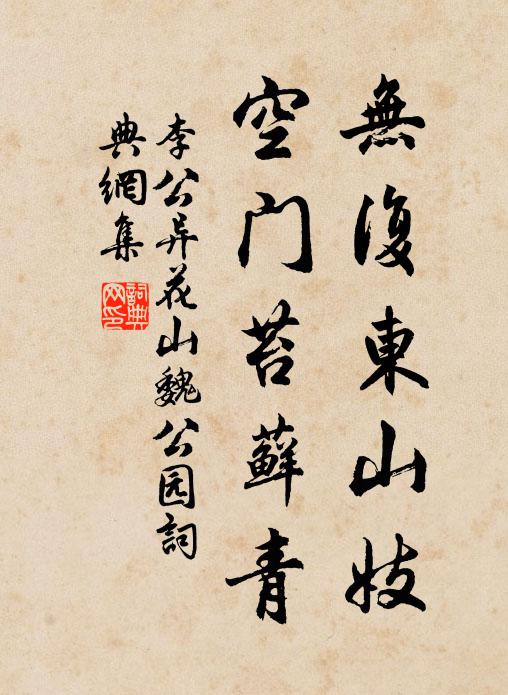 無復東山妓
空門苔蘚青
李公异花山魏公园詞
典網集
詞典网印